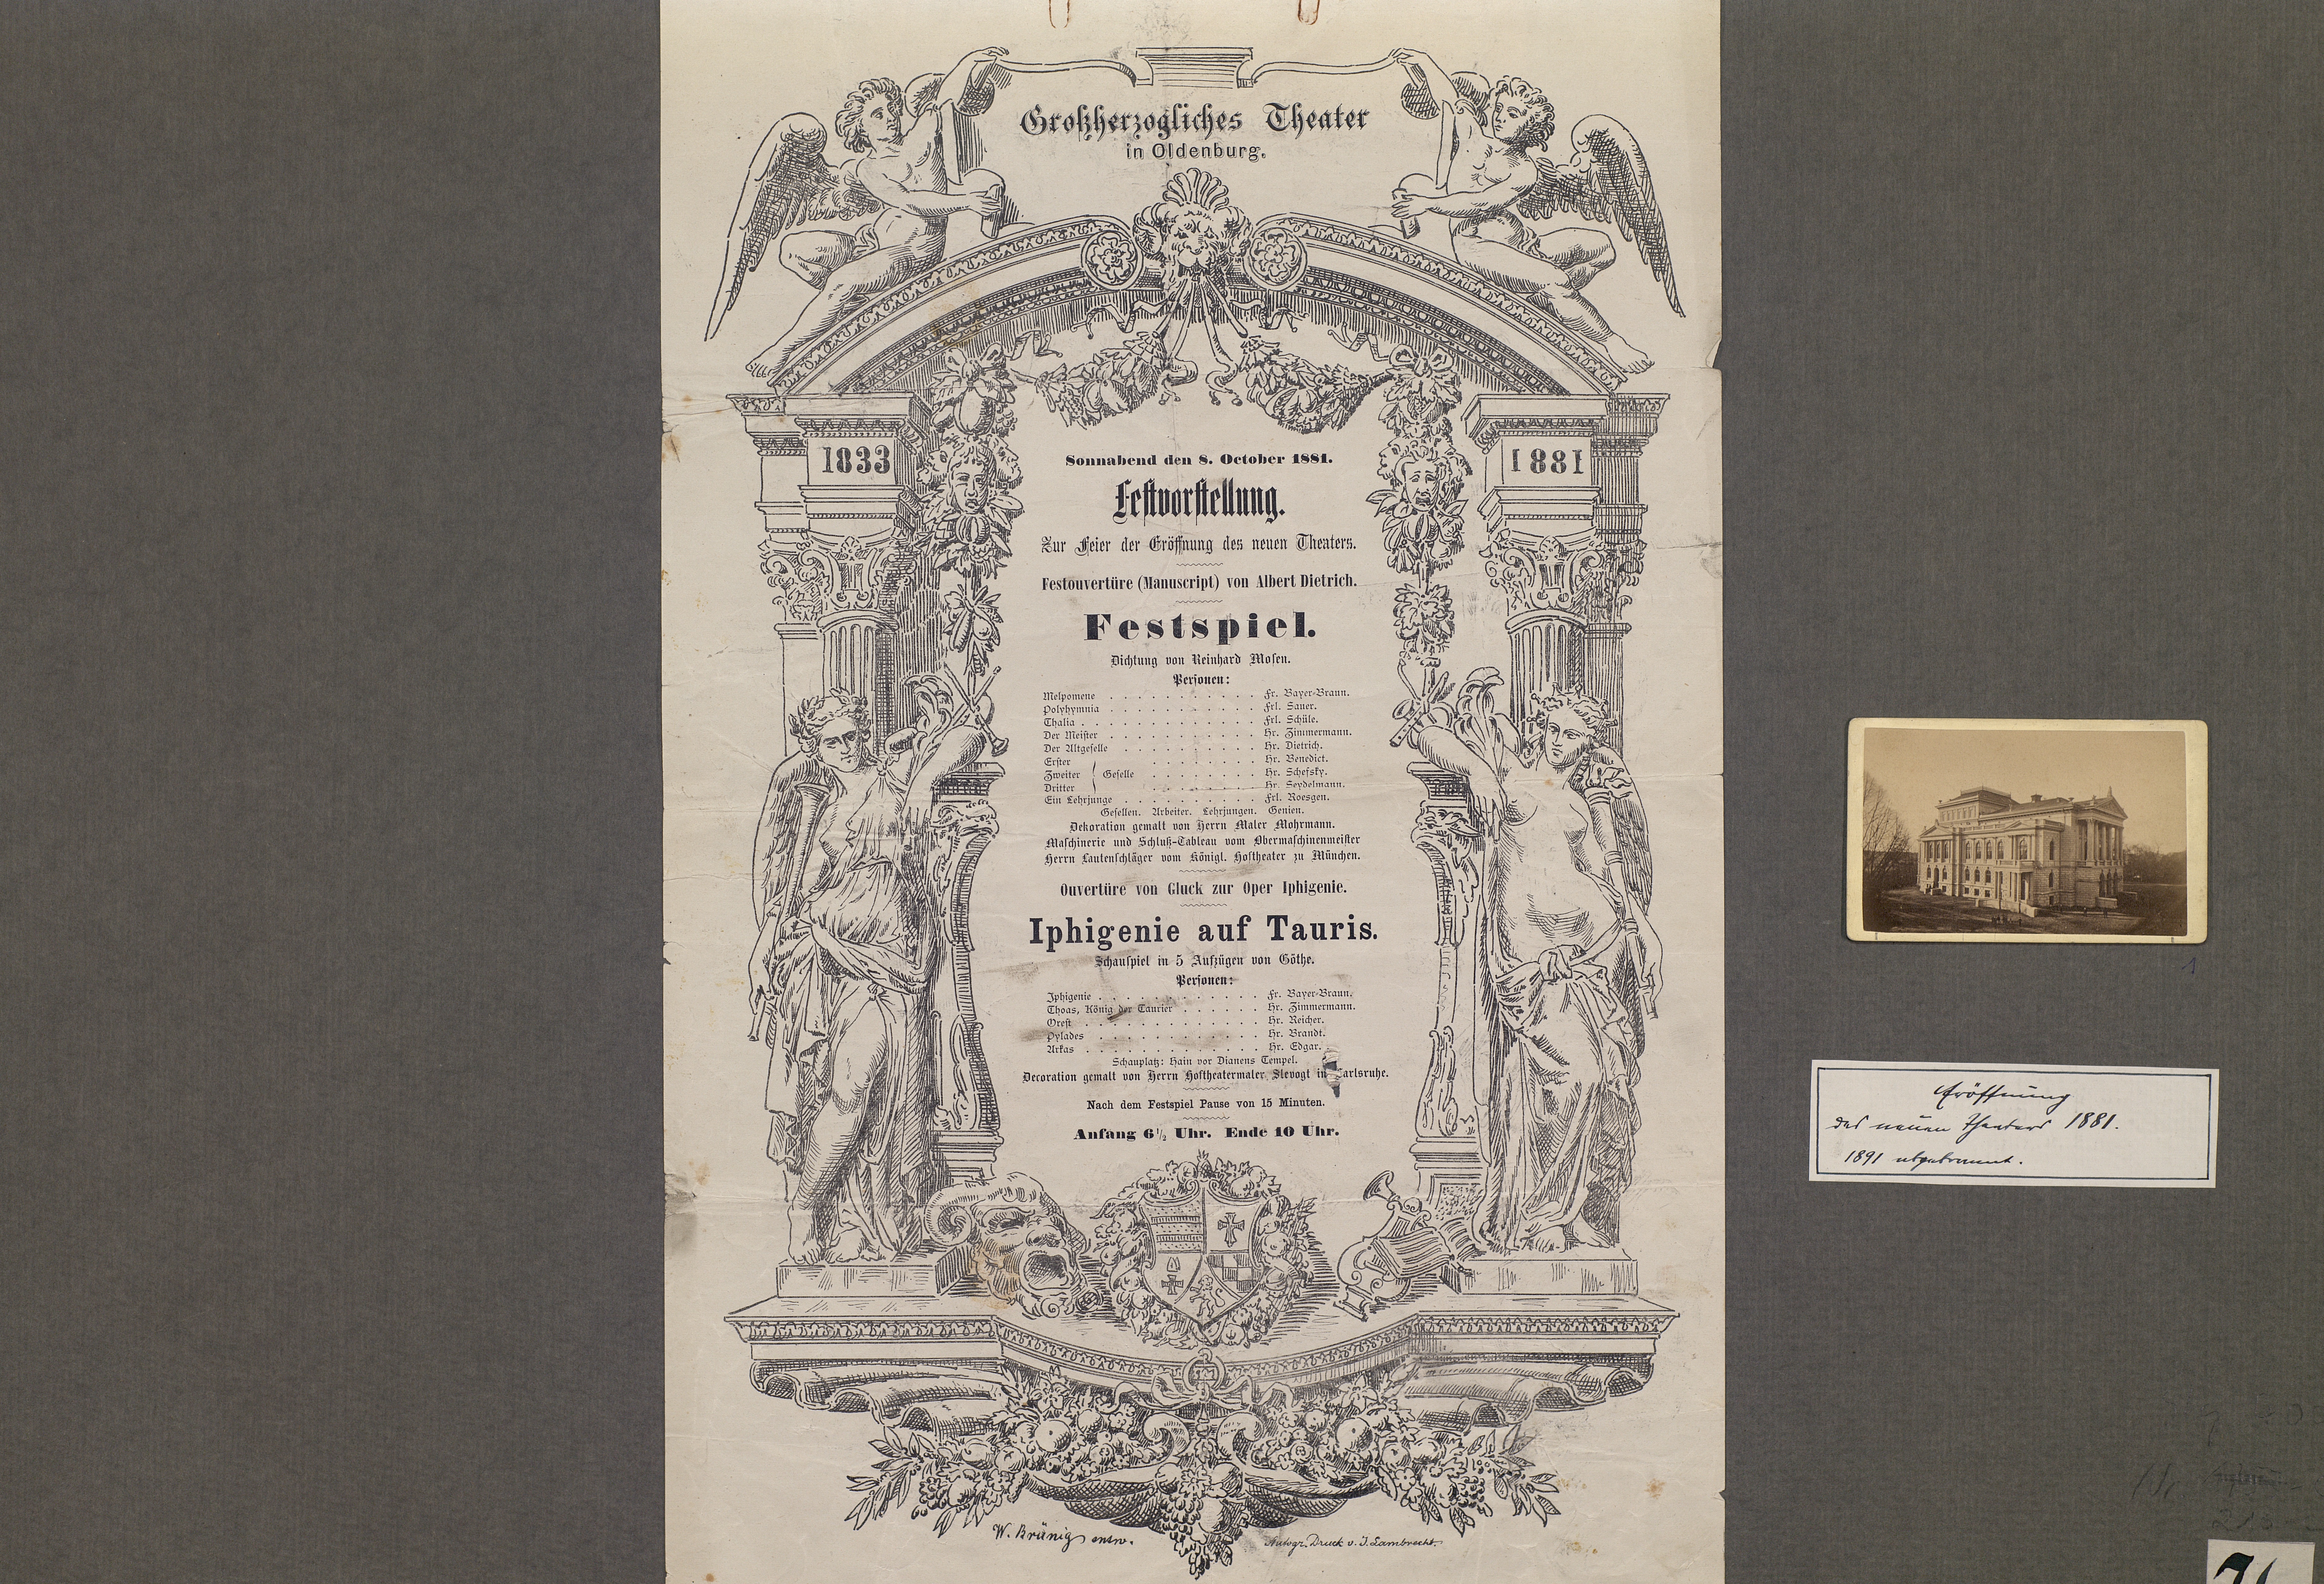 Großherzogliches Theater
in Oldenburg.
1833
1881
Sonnabend den 8. October 1881.
Festvorstellung.
Zur Feier der Eröffnung des neuen Theaters.
Festouvertüre (Manuscript) von Albert Dietrich.
Festspiel.
Dichtung von Reinhard Mosen.
Personen:
Melpomene . . . . . . . . . . . . Fr. Bayer-Braun.
Polyhymnia . . . . . . . . . . . . Frl. Sauer.
Thalia . . . . . . . . . . . . . . Frl. Schüle.
Der Meister . . . . . . . . . . . . Hr. Zimmermann.
Der Altgeselle . . . . . . . . . . . Hr. Dietrich.
Erster . . . . . . . . . Hr. Benedict.
Zweiter Geselle . . . . . . . . . Hr. Schefsky.
Dritter . . . . . . . . . Hr. Seydelmann.
Ein Lehrjunge . . . . . . . . . . . Frl. Roesgen.
Gesellen. Arbeiter. Lehrjungen. Genien.
Dekoration gemalt von Herrn Maler Mohrmann.
Maschinerie und Schluß-Tableau vom Obermaschinenmeister
Herrn Lautenschläger vom Königl. Hoftheater zu München.
Ouvertüre von Gluck zur Oper Iphigenie.
Iphigenie auf Tauris.
Schauspiel in 5 Aufzügen von Göthe.
Personen:
Iphigenie . . . . . . . . . . . . . Fr. Bayer-Braun.
Thoas, König der Taurier . . . . . . Hr. Zimmermann.
Orest . . . . . . . . . . . . . . Hr. Reicher.
Pylades . . . . . . . . . . . . . Hr. Brandt.
Arkas . . . . . . . . . . . . . . Hr. Edgar.
Schauplatz: Hain vor Dianens Tempel.
Decoration gemalt von Herrn Hoftheatermaler Slevogt in Carlsruhe.
Nach dem Festspiel Pause von 15 Minuten.
Anfang 6½ Uhr. Ende 10 Uhr.
W. Brünig entw.
Autogr. Druck v. J. Lambrecht.
1
Eröffnung
des neuen Theaters 1881.
1891 abgebrannt.